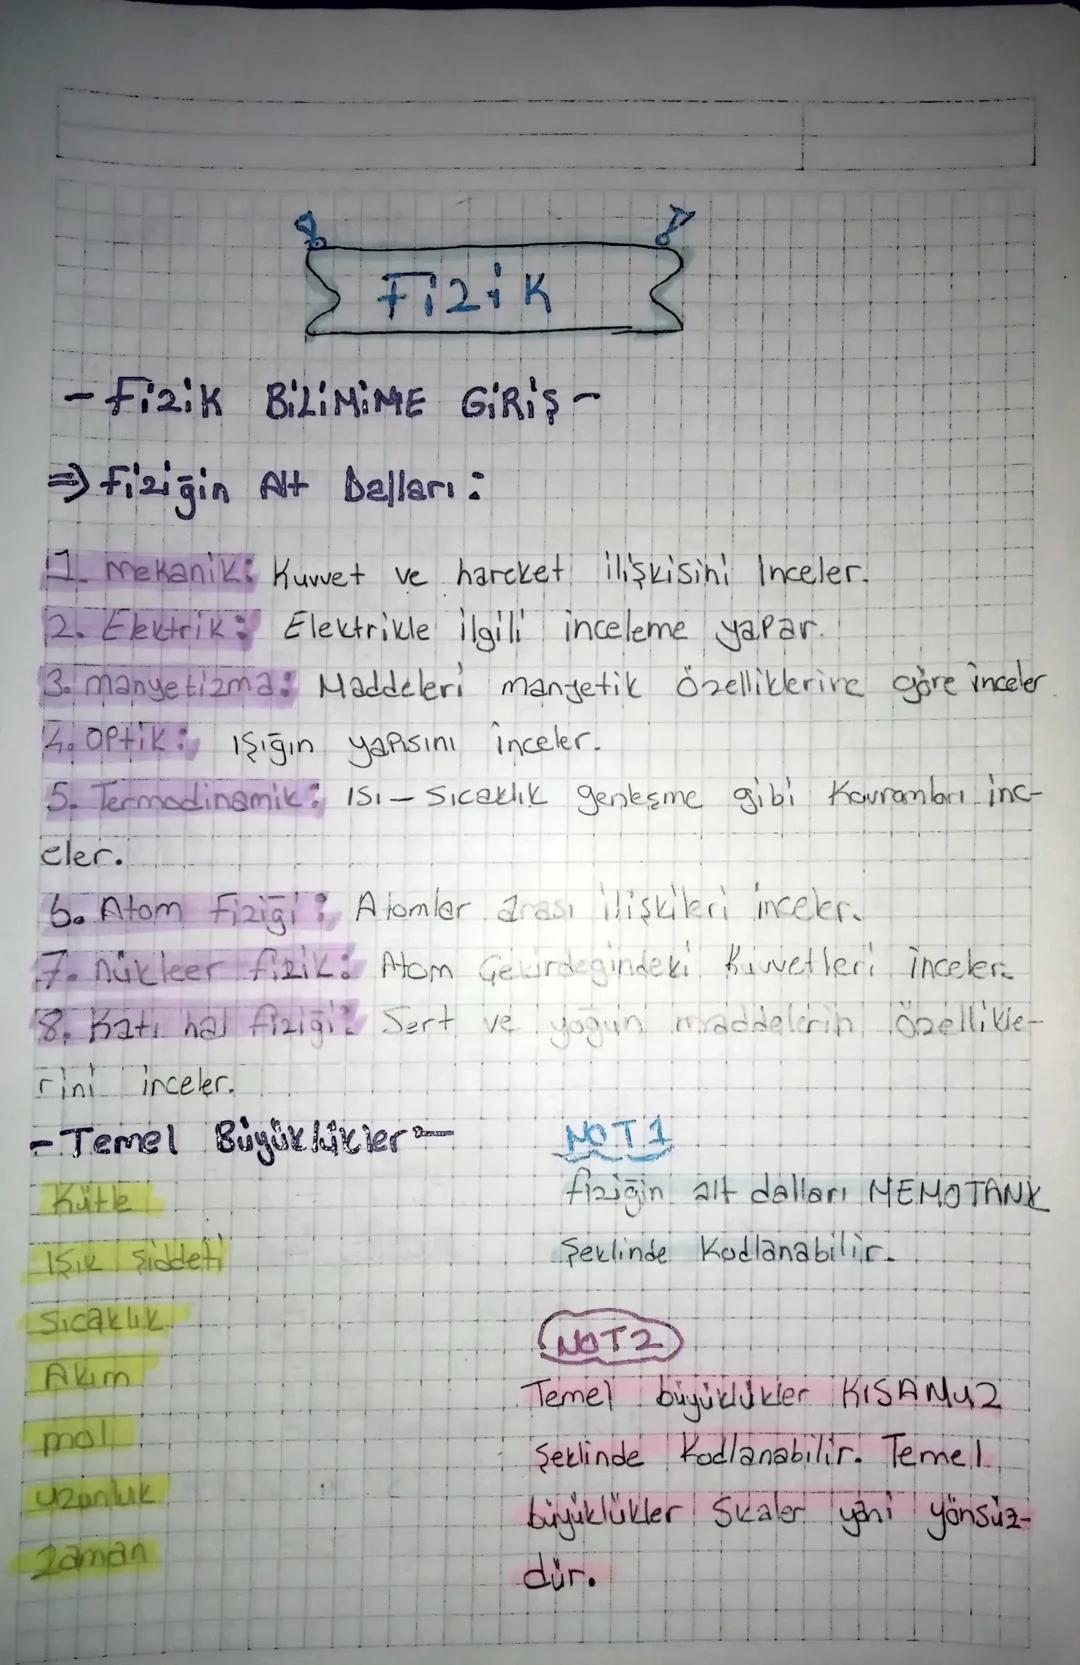 Fizik
- Fizik BİLİMİME GİRİŞ -
⇒ Fiziğin Alt Dalları:
1. mekanik: Kuvvet ve hareket ilişkisini İnceler.
2. Elektrik: Elektrikle ilgili inceleme yapar.
3. manyetizma: Maddeleri manyetik özelliklerine göre inceler.
4. OPtik: ışığın yapısını inceler.
5. Termodinamik: ISI - Sıcaklık genleşme gibi Kavramları inc-
eler.
6. Atom Fiziği: Atomlar arası ilişkileri inceler.
7. nükleer fizik: Atom Çekirdegindeki Kuvvetleri inceler.
8. Katı hal fiziği: Sert ve yoğun maddelerin özellikle-
rini inceler.
- Temel Büyüklükler -
Kütle
Işık şiddeti
Sıcaklık
Akım
mol
uzunluk
Zaman
NOT1
fiziğin alt dalları MEMOTANK
Şeklinde Kodlanabilir.
NOT2
Temel büyüklükler KISAMUZ
Şeklinde Kodlanabilir. Temel
büyüklükler Skaler yani yönsüz-
dür.